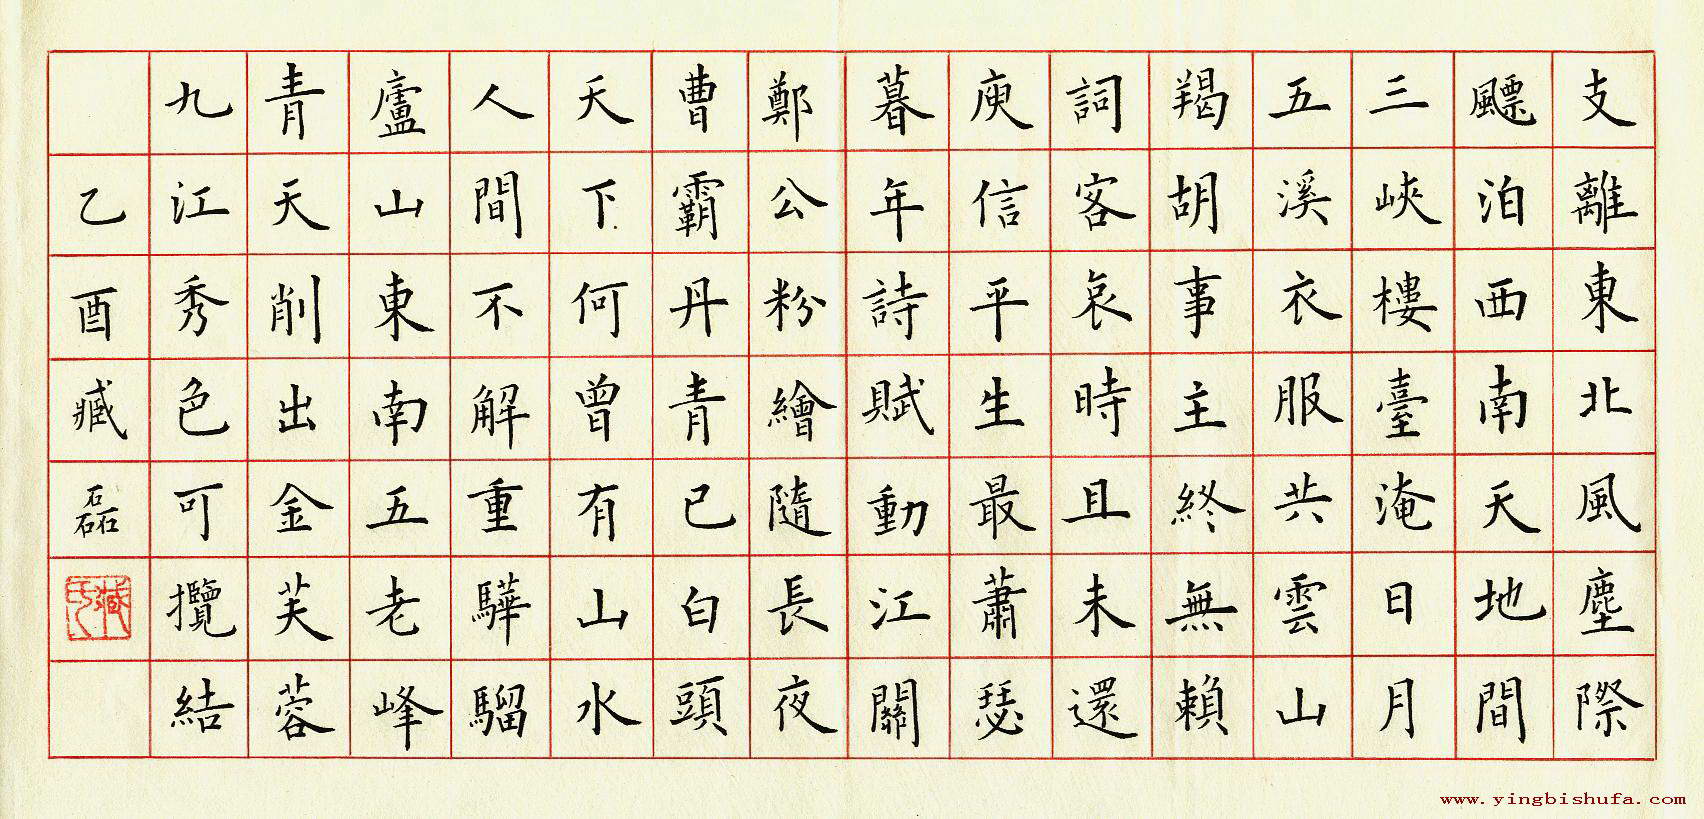 支離東北風塵際
飃泊西南天地間
三峽樓臺淹日月
五溪衣服共雲山
羯胡事主終無賴
詞客哀時且未還
庾信平生最蕭瑟
暮年詩賦動江關
鄭公粉繪隨長夜
曹霸丹青已白頭
天下何曾有山水
人間不解重驊騮
廬山東南五老峰
青天削出金芙蓉
九江秀色可攬結
乙酉臧磊
www.yingbishufa.com